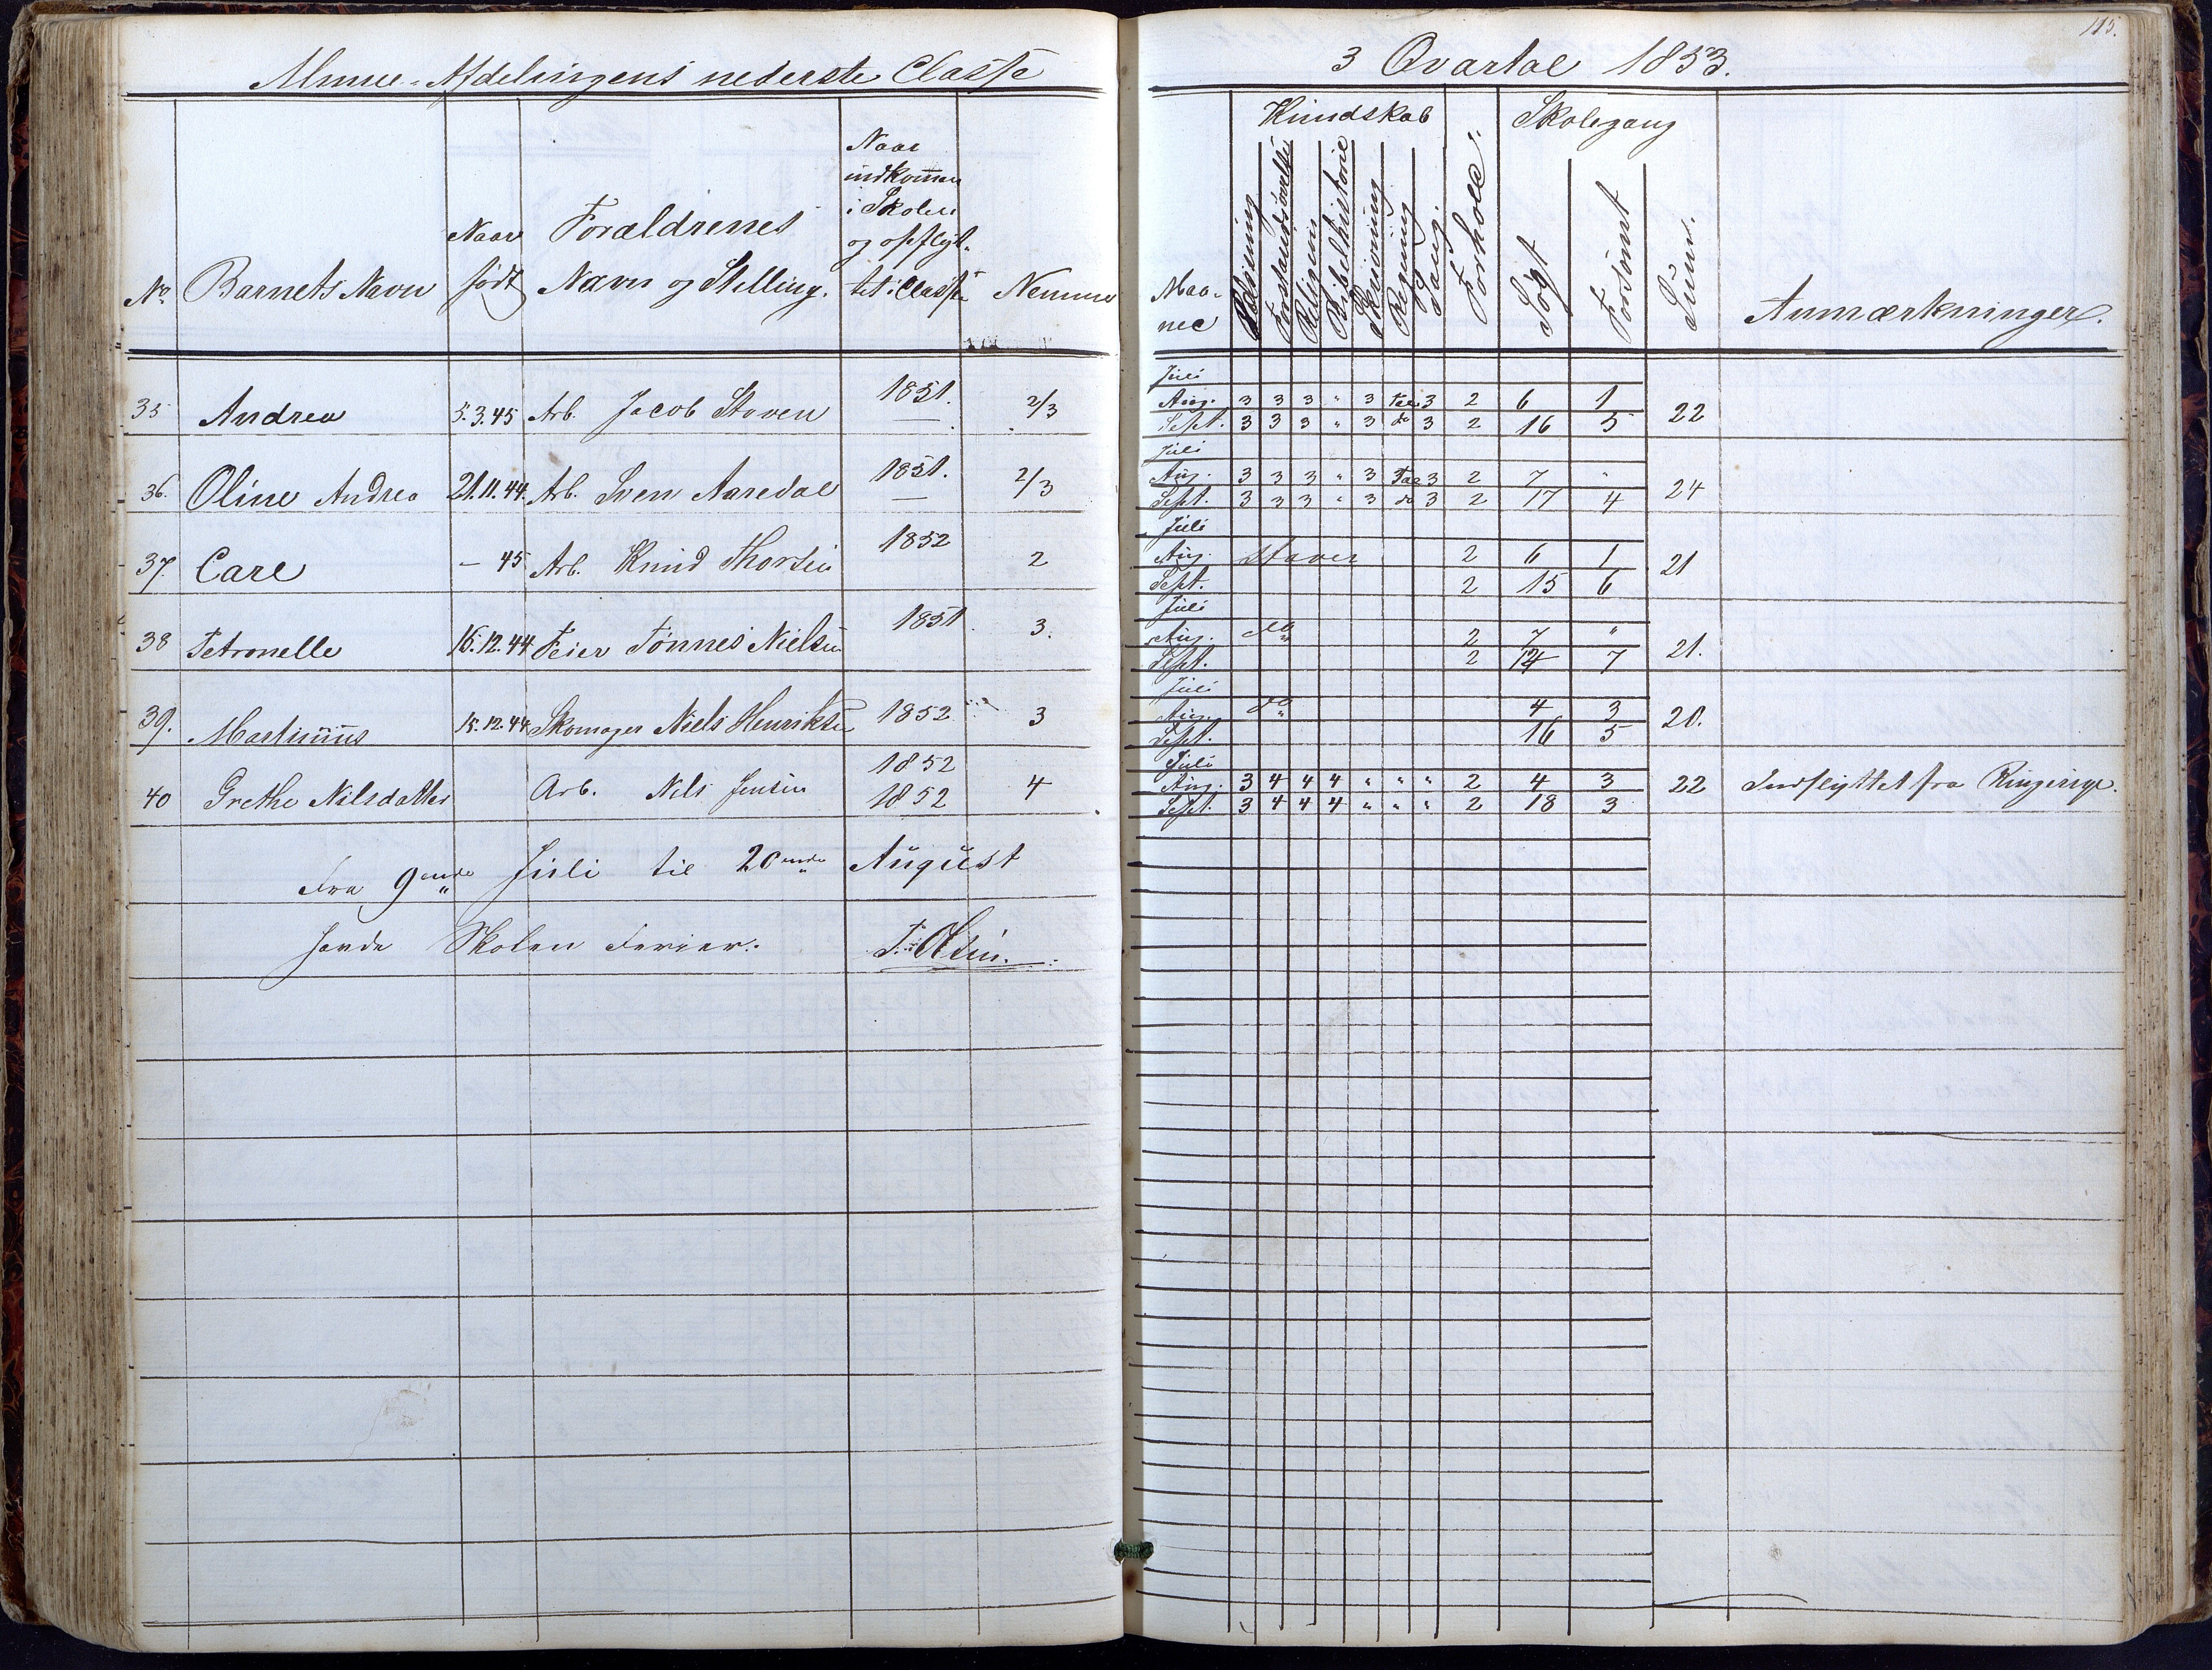 Almue-Afdelingens nederste Classe
No. Barnets Navn Naar født Forældrenes Navn og Stilling. Naar indkommen i Skolen og opflyt-tet i Classe Nemme
35 Andrea 5.3.45 Arb. Jacob Staven 1851. — 2/3
36. Oline Andrea 21.11.44. Arb. Sven Aaredal 1851. — 2/3
37. Carl – 45 Arb. Knud Thorsen 1852 2
38 Petronelle 16.12.44 Feier Tønnes Nielsen 1851. 3.
39. Martinius 15.12.44 Skomager Niels Henriksen 1852 3
40 Grethe Nilsdatter Arb. Nils Jensen 1852 1852 4
Fra 9ende Juli til 20ende August
havde Skolen Ferier.
T. Olsen.
115.
3 Qvartal 1853.
Kundskab Skolegang
Maa-ned Læsning Forstandsøvelse Religion Bibelhistorie Skrivning Regning Sang. Forhold. Søgt Forsømt Sum. Anmærkninger.
Juli
Aug. 3 3 3 " 3 Tal 3 2 6 1
Sept. 3 3 3 " 3 do 3 2 16 5 22
Juli
Aug. 3 3 3 " 3 Tal 3 2 7 "
Sept. 3 3 3 " 3 do 3 2 17 4 24
Juli
Aug. Staver 2 6 1
Sept. 2 15 6 21
Juli
Aug. do 2 7 "
Sept. 2 14 7 21.
Juli
Aug. do 4 3
Sept. 16 5 20.
Juli
Aug. 3 4 4 4 " " " 2 4 3 22 Indflyttet fra Ringerige.
Sept. 3 4 4 4 " " " 2 18 3